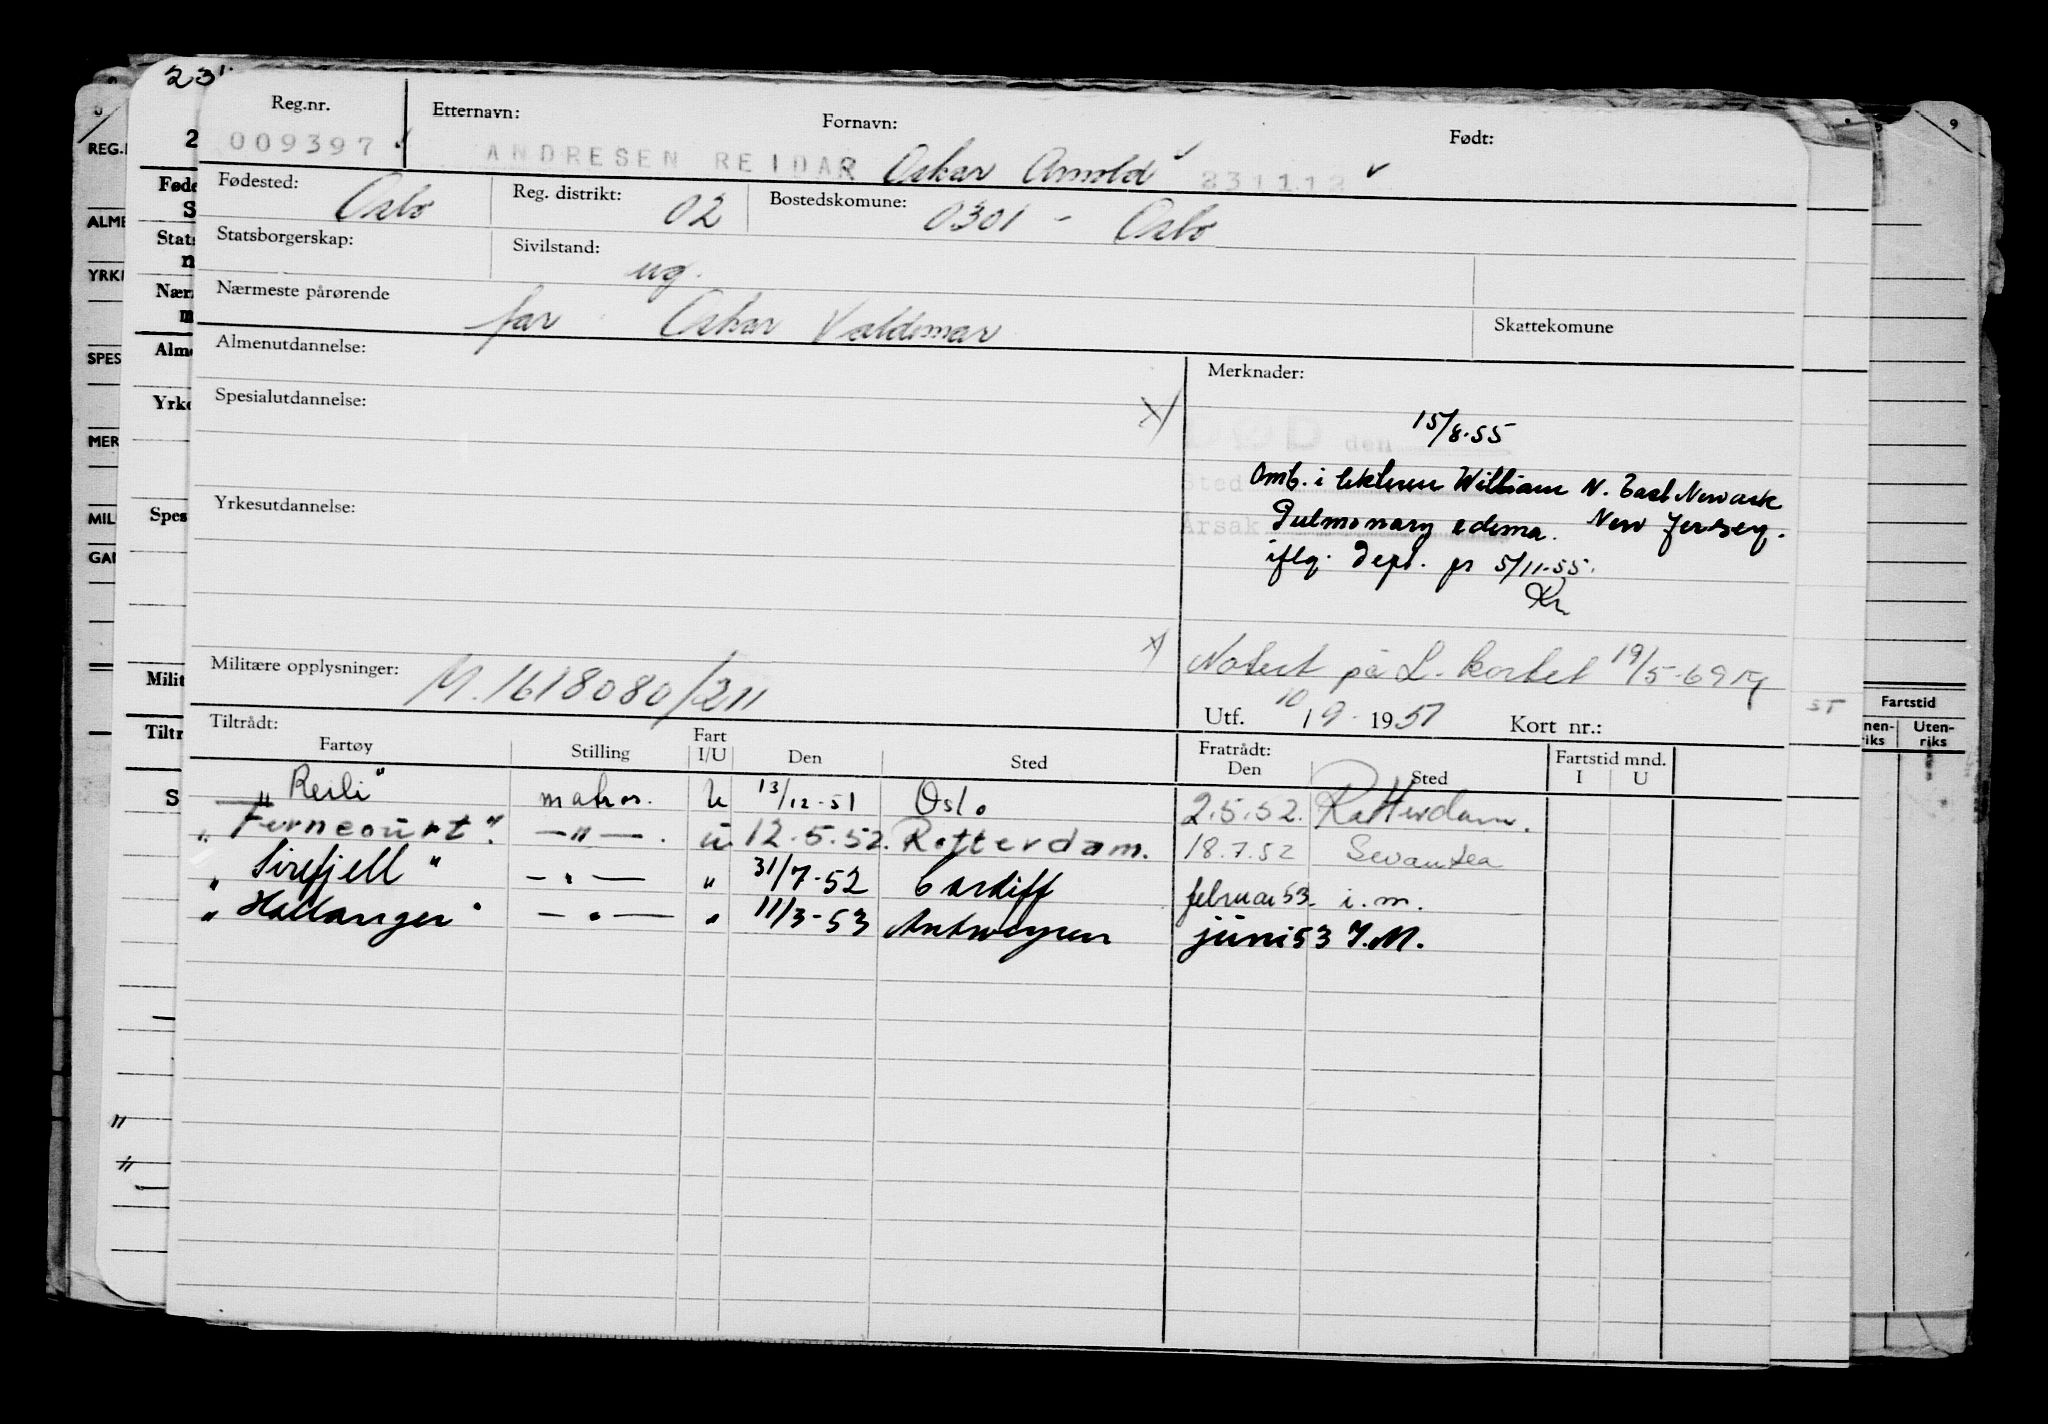 23'
Reg.nr. Etternavn: Fornavn: Født:
009397 ANDRESEN REIDAR Oskar Arnold 231112
Fødested: Oslo Reg. distrikt: 02 Bostedskomune: 0301 - Oslo
Statsborgerskap: Sivilstand: ug.
Nærmeste pårørende far Oskar Valdemar Skattekomune
Almenutdannelse: Merknader:
Spesialutdannelse:
DØD den 15/8.55
Sted Omb. i lekteren William N. East Newark
Yrkesutdannelse:
Årsak Pulmonary edema. New Jersey.
iflg. Dept. pr 5/11-55.
Kr
Militære opplysninger: M.1618080/211 Notert på L. kortet 19/5-69
Utf. 10/9 1951 Kort nr.:
Tiltrådt: Fratrådt: Fartstid mnd.
Fartøy Stilling Fart I/U Den Sted Den Sted I U
"Reili" matros. U 13/12-51 Oslo 2.5.52. Rotterdam.
"Ferncourt". —"— . u 12.5.52. Rotterdam. 18.7.52 Swansea
"Sirefjell" —"— " 31/7-52 Cardiff februar 53. i.m.
"Hallanger" —"— " 11/3-53 Antwerpen juni 53 I.M.
REG.
ALME
YRK
SPES
MER
MIL
Føde
Stats
Nær
Alm
Yrke
Spes
Milit
Tiltr
9
ST
Fartstid
Uten-
riks